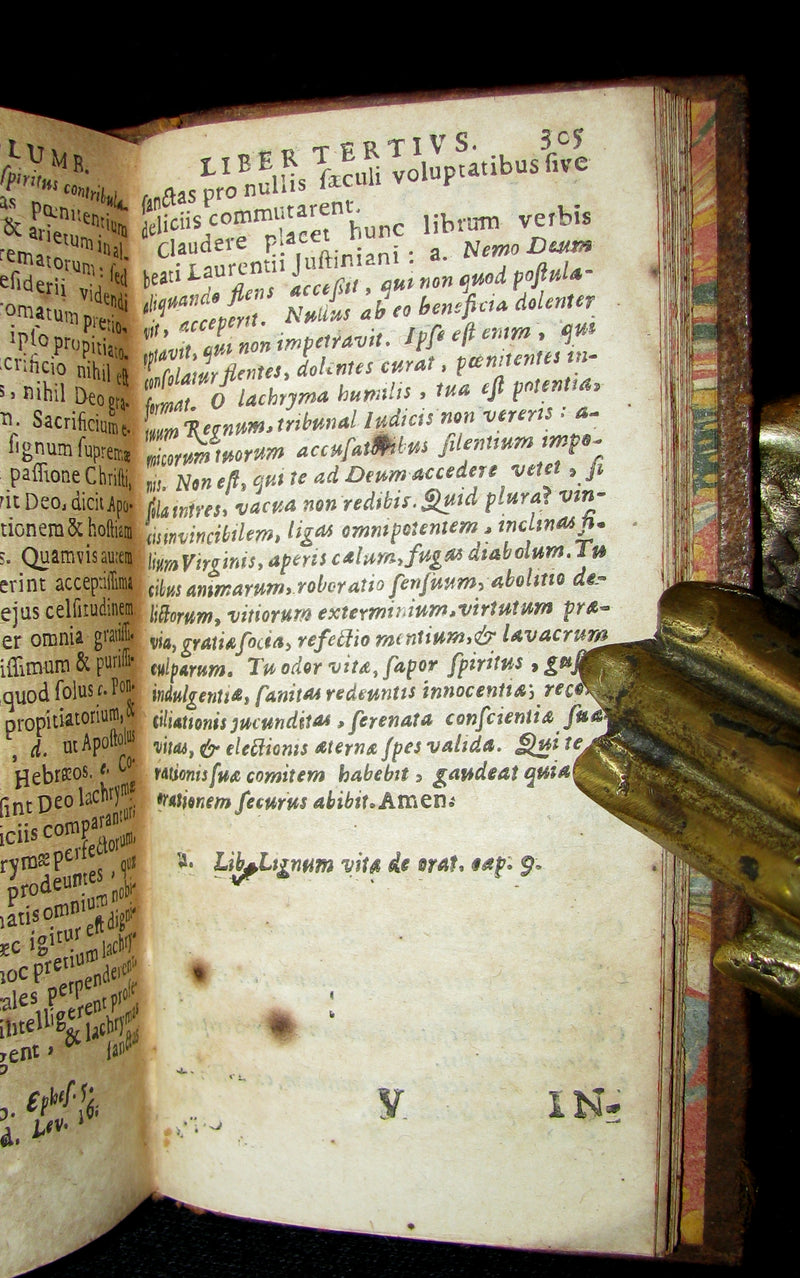 LUMB.
spiritus contribula-
as pœnitentium
& arietum in al-
rematorum: sed
esiderii videndi
omatum pretio-
ipso propitiato.
crificio nihil est
s, nihil Deo gra-
n. Sacrificium e-
signum supremæ
passione Christi,
vit Deo, dicit Apo-
tionem & hostiam
s. Quamvis autem
erint acceptissima
ejus celsitudinem
er omnia gratissi-
issimum & purissi-
quod solus c. Pon-
propitiatorium, &
, d. ut Apostolus
Hebræos. e. Co-
sint Deo lachrymæ
iciis comparantur,
rymæ perfectorum,
prodeuntes, quæ
natis omnium nobi-
æc igitur est digni-
hoc pretium lachry-
ales perpenderent
intelligerent prose-
gent, & lachrymas
sanctas
Ephes. 5.
d. Lev. 16.
LIBER TERTIVS. 305
sanctas pro nullis sæculi voluptatibus sive
deliciis commutarent.
Claudere placet hunc librum verbis
beati Laurentii Justiniani: a. Nemo Deum
aliquando flens accessit, qui non quod postula-
vit, acceperit. Nullus ab eo beneficia dolenter
optavit, qui non impetravit. Ipse est enim, qui
consolatur flentes, dolentes curat, pœnitentes in-
format. O lachryma humilis, tua est potentia,
tuum Regnum, tribunal Iudicis non vereris: a-
micorum tuorum accusatoribus silentium impo-
nis. Non est, qui te ad Deum accedere vetet, si
sola intres, vacua non redibis. Quid plura? vin-
cis invincibilem, ligas omnipotentem, inclinas fi-
lium Virginis, aperis cælum, fugas diabolum. Tu
cibus animarum, roboratio sensuum, abolitio de-
lictorum, vitiorum exterminium, virtutum præ-
via, gratiæ socia, refectio mentium, & lavacrum
culparum. Tu odor vitæ, sapor spiritus,
indulgentiæ, sanitas redeuntis innocentiæ; recon-
ciliationis jucunditas, serenata conscientiæ sua-
vitas, & electionis æternæ spes valida. Qui te
rationis suæ comitem habebit, gaudeat quia
orationem securus abibit. Amen.
a. Lib. Lignum vitæ de orat. cap. 9.
V IN-